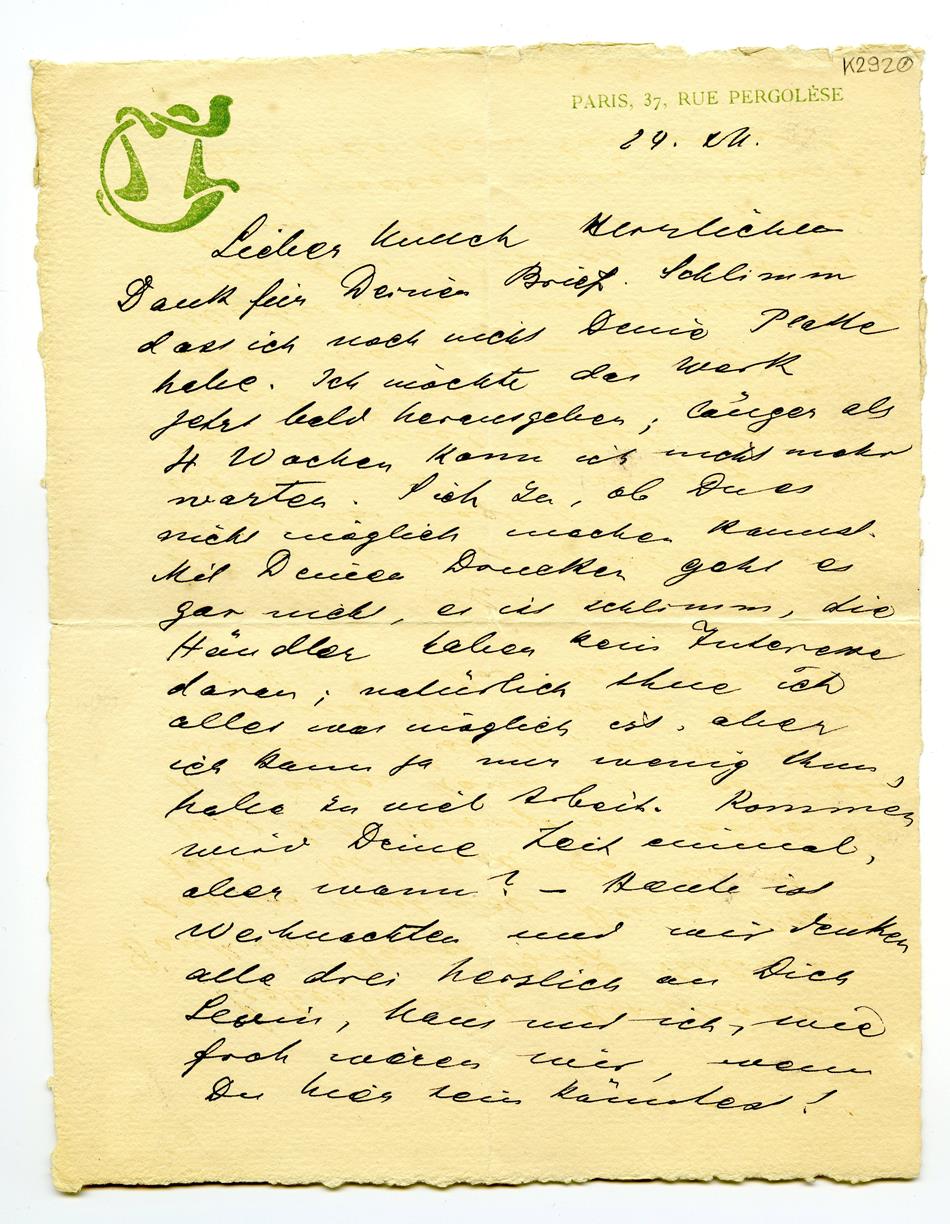 K292
PARIS, 37, RUE PERGOLÈSE
24. XII.
Lieber Munch Herzlichen
Dank für Deinen Brief. Schlimm
dass ich noch nicht Deine Platte
habe. Ich möchte das Werk
jetzt bald herausgeben; länger als
4 Wochen kann ich nicht mehr
warten. Sieh zu, ob Du es
nicht möglich machen kannst.
Mit Deinen Drucken geht es
gar nicht, es ist schlimm, die
Händler haben kein Interesse
daran; natürlich thue ich
alles was möglich ist, aber
ich kann ja nur wenig thun,
habe zu viel Arbeit. Kommen
wird Deine Zeit einmal,
aber wann? – Heute ist
Weihnachten und wir denken
alle drei herzlich an Dich
Levin, Hans und ich, wie
froh wären wir, wenn
Du hier sein könntest!